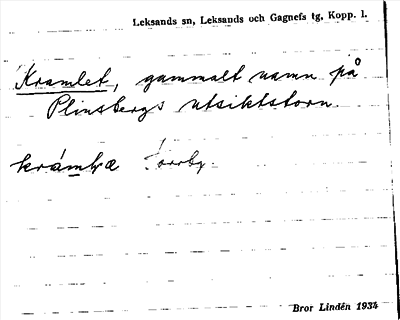 Leksands sn, Leksands och Gagnefs tg, Kopp. l.
Kramlet, gammalt namn på
Plinsbergs utsiktstorn.
Norrby.
Bror Lindén 1934